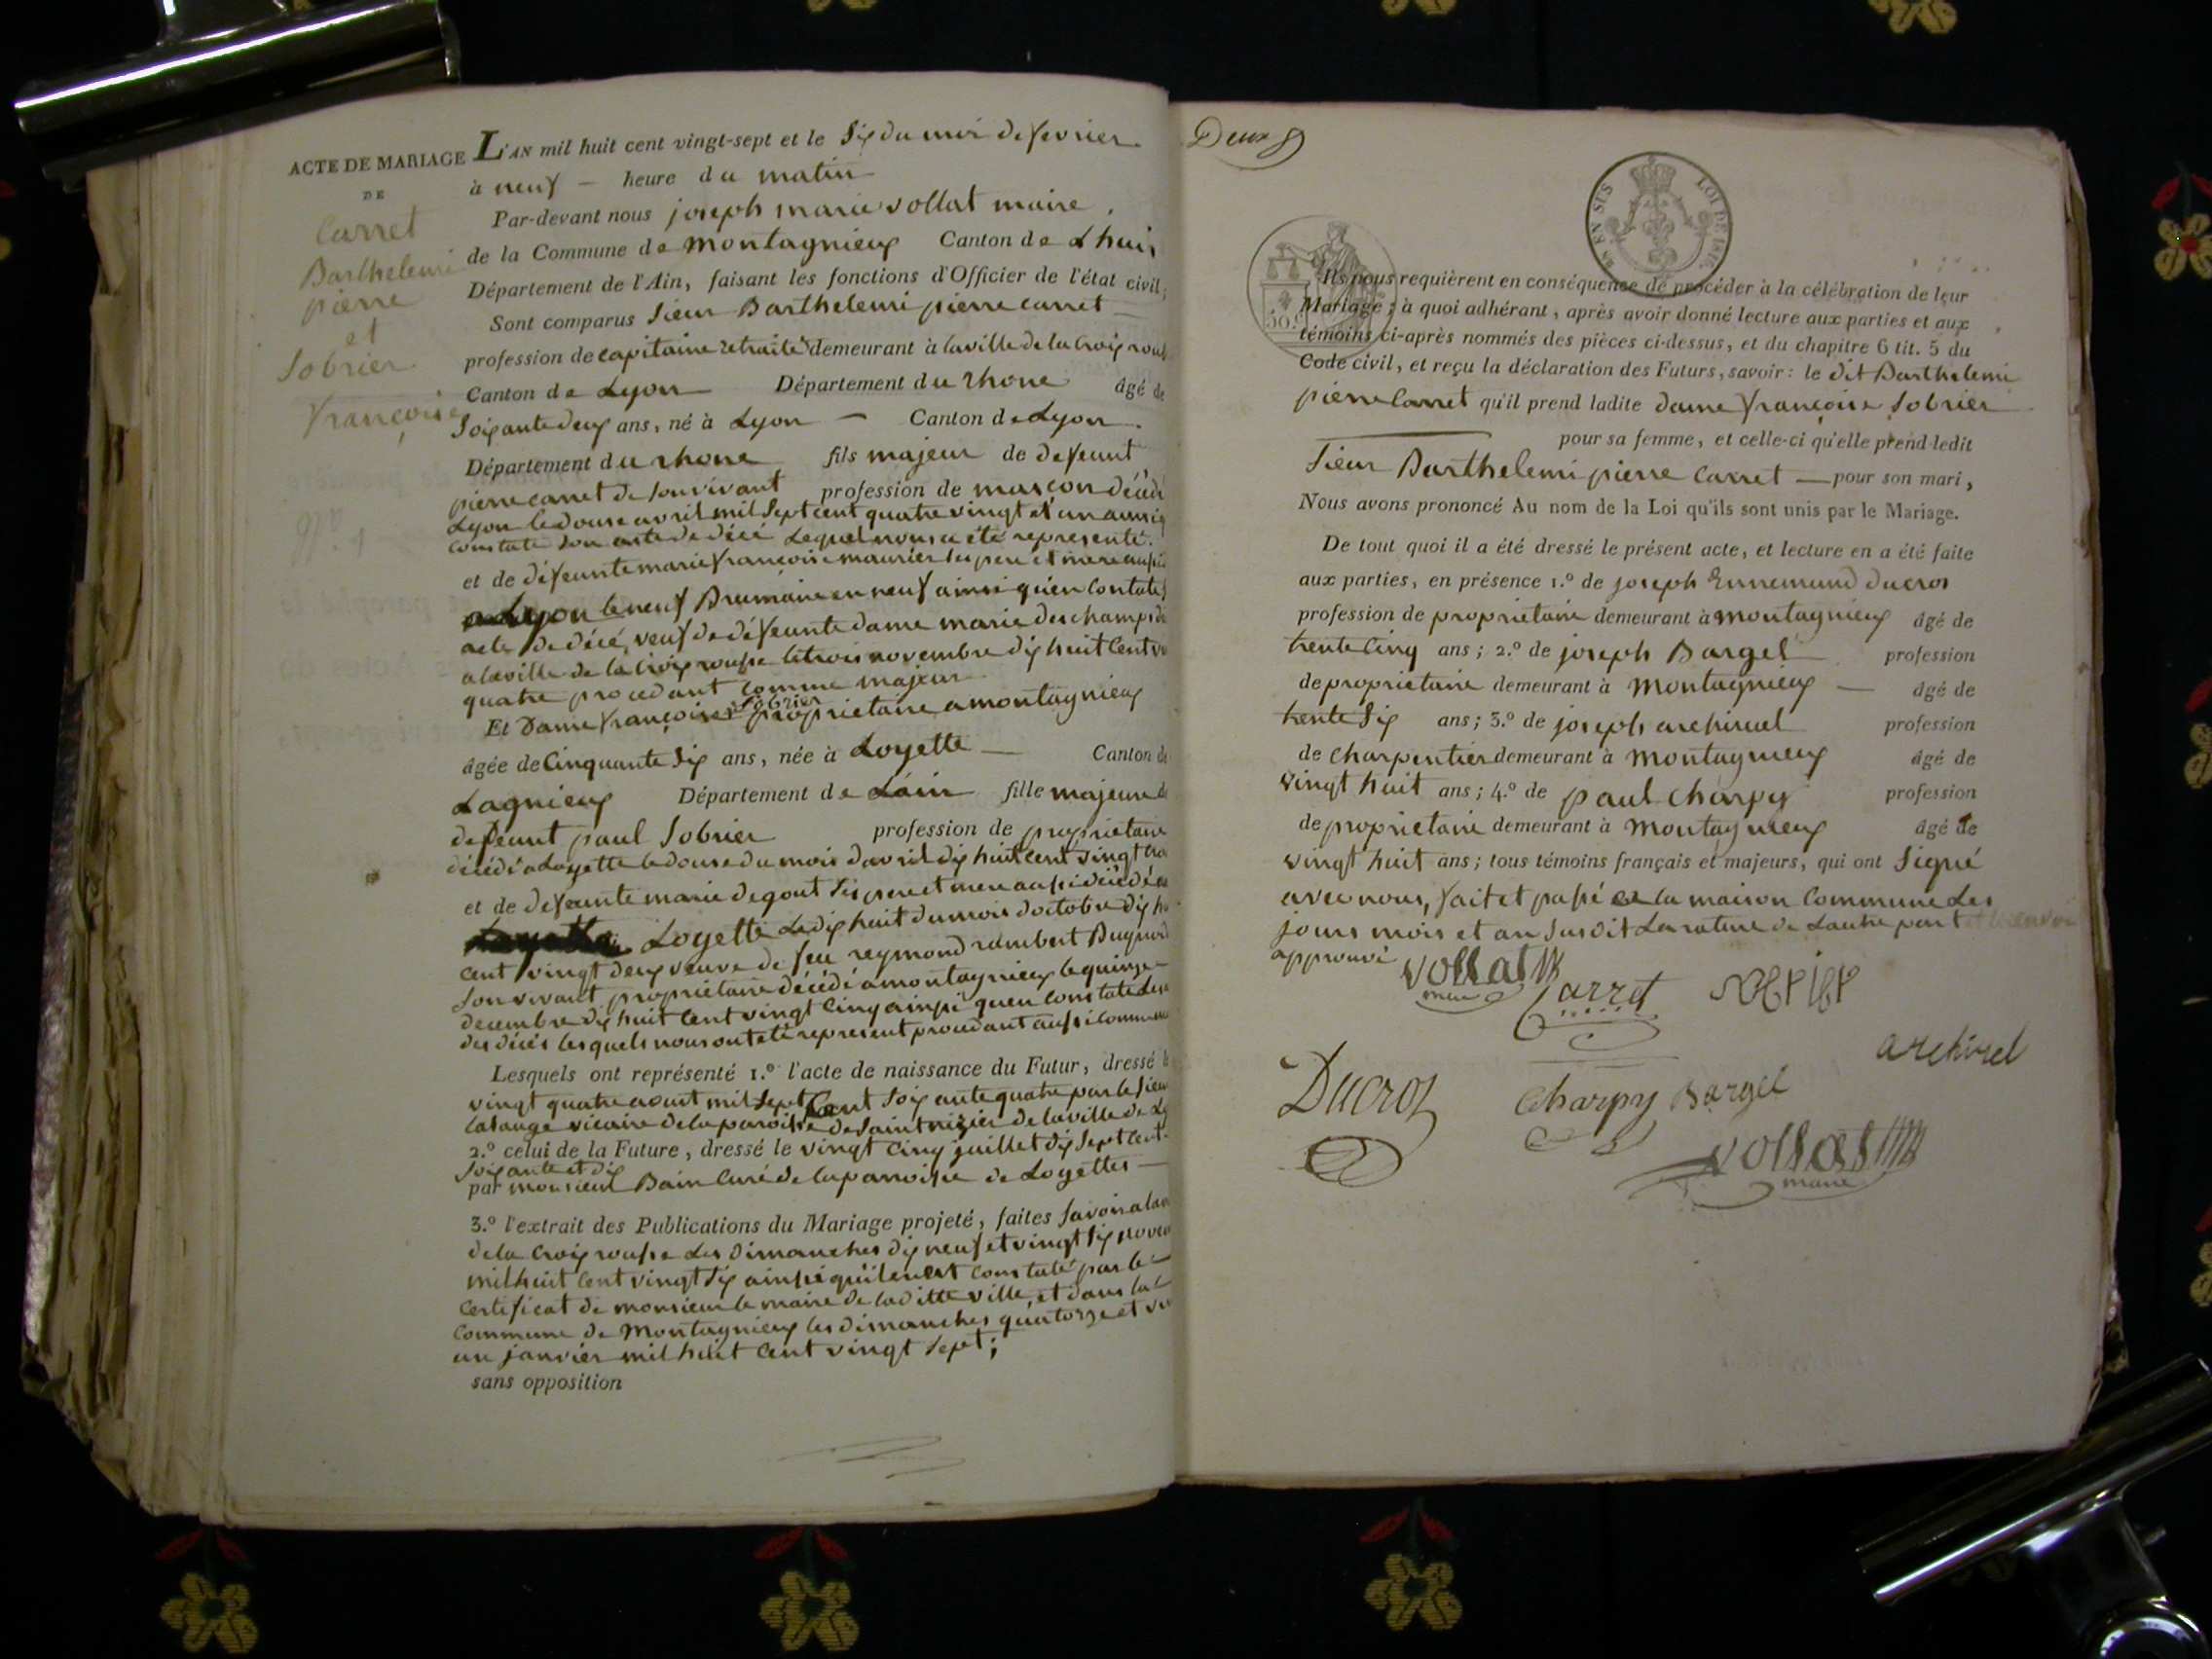 ACTE DE MARIAGE
DE
Carret
Barthelemi
pierre
et
Sobrier
françoise
L'AN mil huit cent vingt-sept et le Six du moi de fevrier
à neuf — heure du matin
Par-devant nous joseph marie vollat maire
de la Commune de montagnieux Canton de Lhuis
Département de l'Ain, faisant les fonctions d'Officier de l'état civil;
Sont comparus Sieur Barthelemi pierre carret —
profession de capitaine retraité demeurant à laville de la Croix rous
Canton de Lyon Département du rhone âgé de
Soixante deux ans, né à Lyon — Canton de Lyon
Département du rhone fils majeur de defeunt
pierre carret de son vivant profession de masçon décédé
Lyon le douse avril mil Sept cent quatre vingt et un
constate son acte de décé Lequel nous a été representé.
et de défeunte marie françoise maurier
Lyon le neuf Brumaire en neuf ainsi qu'en contate
acte de décé, veuf de défeunte dame marie deschamps
a laville de la Croix rousse le trois novembre dix huit Cent
quatre procedant comme majeur
Et Dame françoise Sobrier propriétaire a montagnieux
âgée de Cinquante Six ans, née à Loyette — Canton de
Lagnieux Département de Lain fille majeure de
defeunt paul Sobrier profession de propriétaire
décédé a Loyette le douse du mois davril dix huit cent vingt
et de defeunte marie degout Ses pere et mere aussi décédé
Loyette Le dix huit du mois doctobre dix
cent vingt deux veuve de feu reymond rambert
Son vivant propriétaire décédé a montagnieux le quinze
decembre dix huit Cent vingt Cinq ainsi quen constate
des décés lesquels nous ont eté represent procedant aussi comme
Lesquels ont représenté 1.º l'acte de naissance du Futur, dressé le
vingt quatre aout mil Sept Cent Soixante quatre par le Sieur
vicaire de la paroisse de Saint nizier de laville de
2.º celui de la Future, dressé le vingt Cinq juillet dix Sept Cent
Soixante et dix
par monsieur Bain Curé de la paroisse de Loyettes —
3.º l'extrait des Publications du Mariage projeté, faites Savoir
de la Croix rousse Les Dimanches dix neuf et vingt Six
mil huit Cent vingt Six ainsi qu'il en est constaté par le
Certificat de monsieur le maire de la ditte ville, et dans la
Commune de Montagnieux les dimanches quatorze et
un janvier mil huit Cent vingt Sept;
sans opposition
Deux
EN SUS LOI DE 1816
50.c
Ils nous requièrent en conséquence de procéder à la célébration de leur
Mariage; à quoi adhérant, après avoir donné lecture aux parties et aux
témoins ci-après nommés des pièces ci-dessus, et du chapitre 6 tit. 5 du
Code civil, et reçu la déclaration des Futurs, savoir: le dit Barthelemi
pierre Carret qu'il prend ladite dame françoise Sobrier
pour sa femme, et celle-ci qu'elle prend ledit
Sieur Barthelemi pierre Carret — pour son mari,
Nous avons prononcé Au nom de la Loi qu'ils sont unis par le Mariage.
De tout quoi il a été dressé le présent acte, et lecture en a été faite
aux parties, en présence 1.º de joseph Ennemund ducros
profession de propriétaire demeurant à montagnieux âgé de
trente Cinq ans; 2.º de joseph Bargel profession
de propriétaire demeurant à Montagnieux — âgé de
trente Six ans; 3.º de joseph archirel profession
de Charpentier demeurant à Montagnieux âgé de
vingt huit ans; 4.º de paul Charpy profession
de propriétaire demeurant à Montagnieux âgé de
vingt huit ans; tous témoins français et majeurs, qui ont Signé
avec nous, fait et passé en la maison Commune Les
jours mois et an Susdit La rature de Lautre part
approuvé
vollat
maire
Carret
Sobrier
archirel
Ducros
Charpy
Bargel
vollat
maire